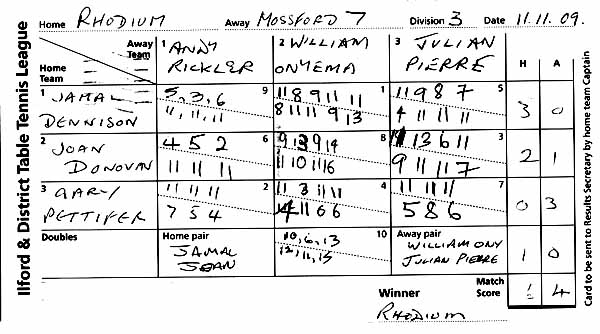 Home RHODIUM Away MOSSFORD 7 Division 3 Date 11.11.09.
Ilford & District Table Tennis League
Away Team
Home Team
1 ANDY RICKLER
2 WILLIAM ONYEMA
3 JULIAN PIERRE
H A
1 JAMAL DENNISON
5, 3, 6 9
11, 11, 11
11 8 9 11 11 1
8 11 11 9 13
11 9 8 7 5
4 11 11 11
3 0
2 JOAN DONOVAN
4 5 2 6
11 11 11
8
11 10 11 16
13 6 11 3
9 11 11 17
2 1
3 GARY PETTIFER
11 11 11 2
7 5 4
11 3 11 11 4
11 6 6
11 11 11 7
5 8 6
0 3
Doubles
Home pair
JAMAL
JOAN
10, 6, 13 10
12, 11, 15
Away pair
WILLIAM ONY
JULIAN PIERRE
1 0
Winner
RHODIUM
Match Score
4
Card to be sent to Results Secretary by home team Captain